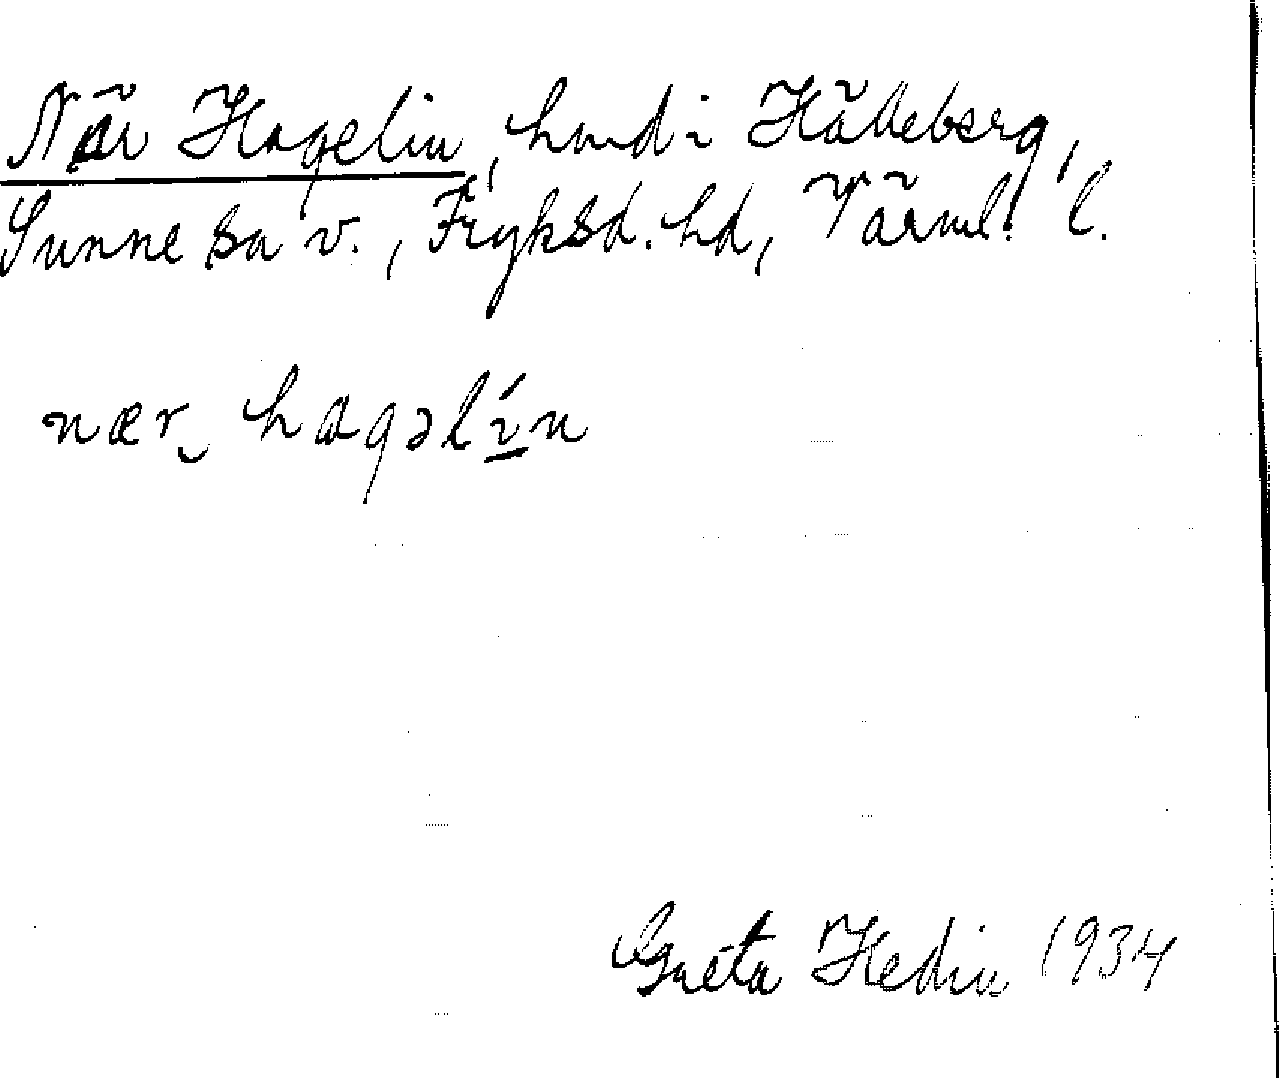 När Hagelin, hmd i Hålleberg,
Sunne sn v., Fryksd. hd, Värml. l.
nær hagəlín
Greta Hedin 1934